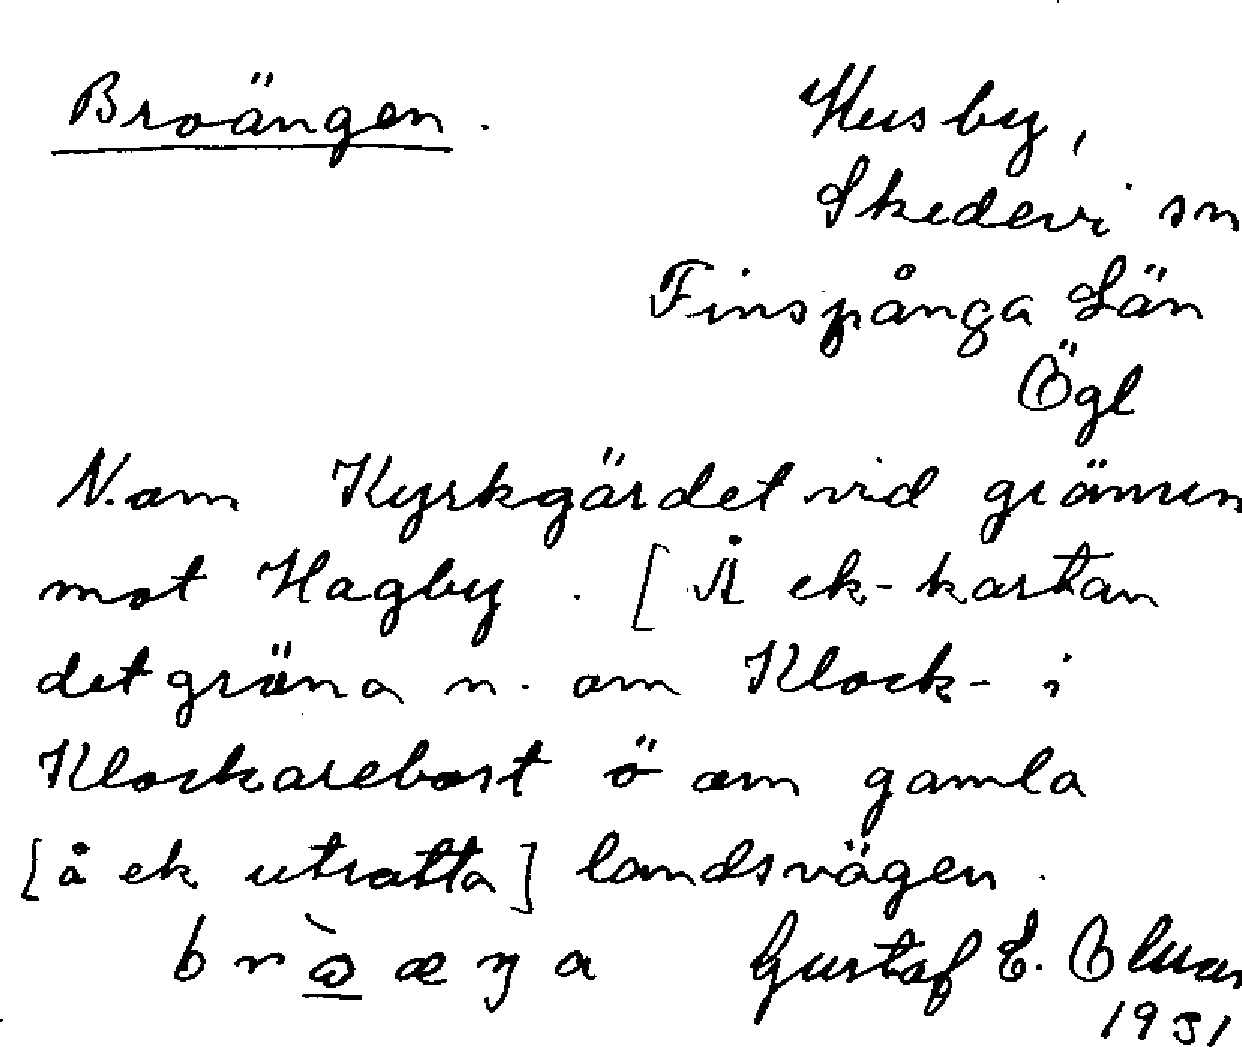 Broängen.
Husby,
Skedevi sn
Finspånga Län
Ögl
N.om Kyrkgärdet vid gränsen
mot Hagby. [Å ek-kartan
det gröna n. om Klock- i
Klockarebost ö om gamla
[å ek utsatta] landsvägen.
Gustaf E.
1951